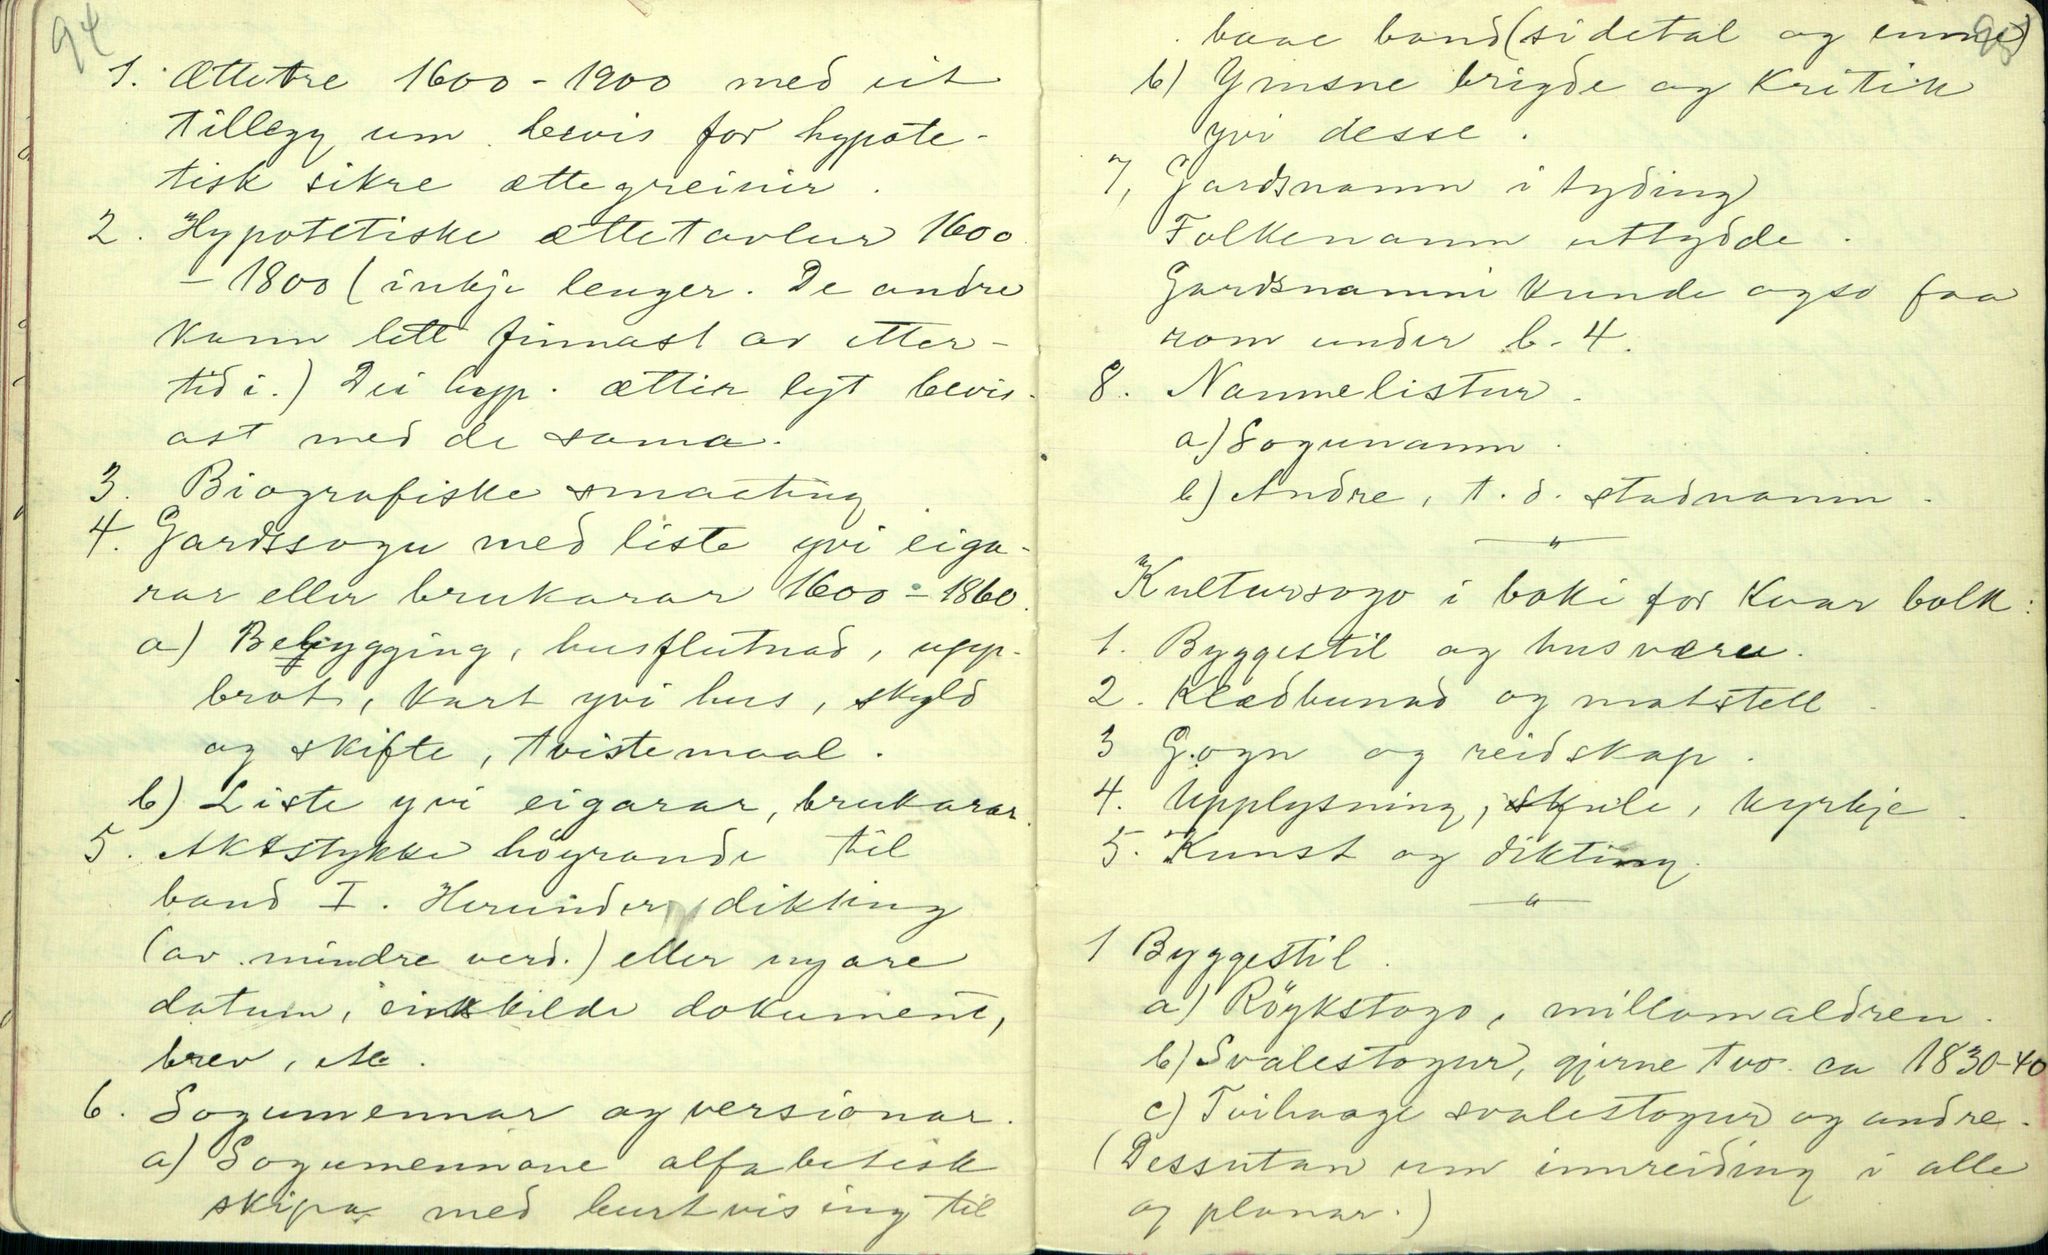 94
1. Ættetre 1600-1900 med eit
tillegg um bevis for hypote-
tisk sikre ættegreinir.
2. Hypotetiske ættetavlur 1600
- 1800 (inkje lenger. De andre
kann lett finnast av etter-
tidi.) Dei hyp. ættir lyt bevis-
ast med de sama.
3. Biografiske smaating
4. Gardssogu med liste yvi eiga-
rar eller brukarar 1600-1860.
a) Bebygging, husflutnad, upp-
brot, kart yvi hus, skyld
og skifte, tvistemaal.
b) Liste yvi eigarar, brukarar.
5. Aktstykke höyrande til
band I. Herunder dikting
(av mindre verd.) eller nyare
datum, einskilde dokument,
brev, etc.
6. Sogumennar og versionar.
a) Sogumennane alfabetisk
skipa med burtvising til
95
baae band (sidetal og emne)
b) Ymsne brigde og kritik
yvi desse.
7, Gardsnamn i tyding
Folkenamn uttydde.
Gardsnamni kunde ogso faa
rom under b-4.
8. Namnelistur.
a) Sogunamn.
b) Andre, t.d. stadnamn.
Kultursogo i boki for kvar bolk:
1. Byggestil og husvære.
2. Klædbunad og matstell.
3 Gogn og reidskap.
4. Upplysning, skule, kyrkje.
5. Kunst og dikting.
1 Byggestil.
a) Röykstogo, millomaldren.
b) Svalestogur, gjerne tvo. ca 1830-40
c) Tvihøage svalestogur og andre.
(Dessutan um innreiding i alle
og planar.)